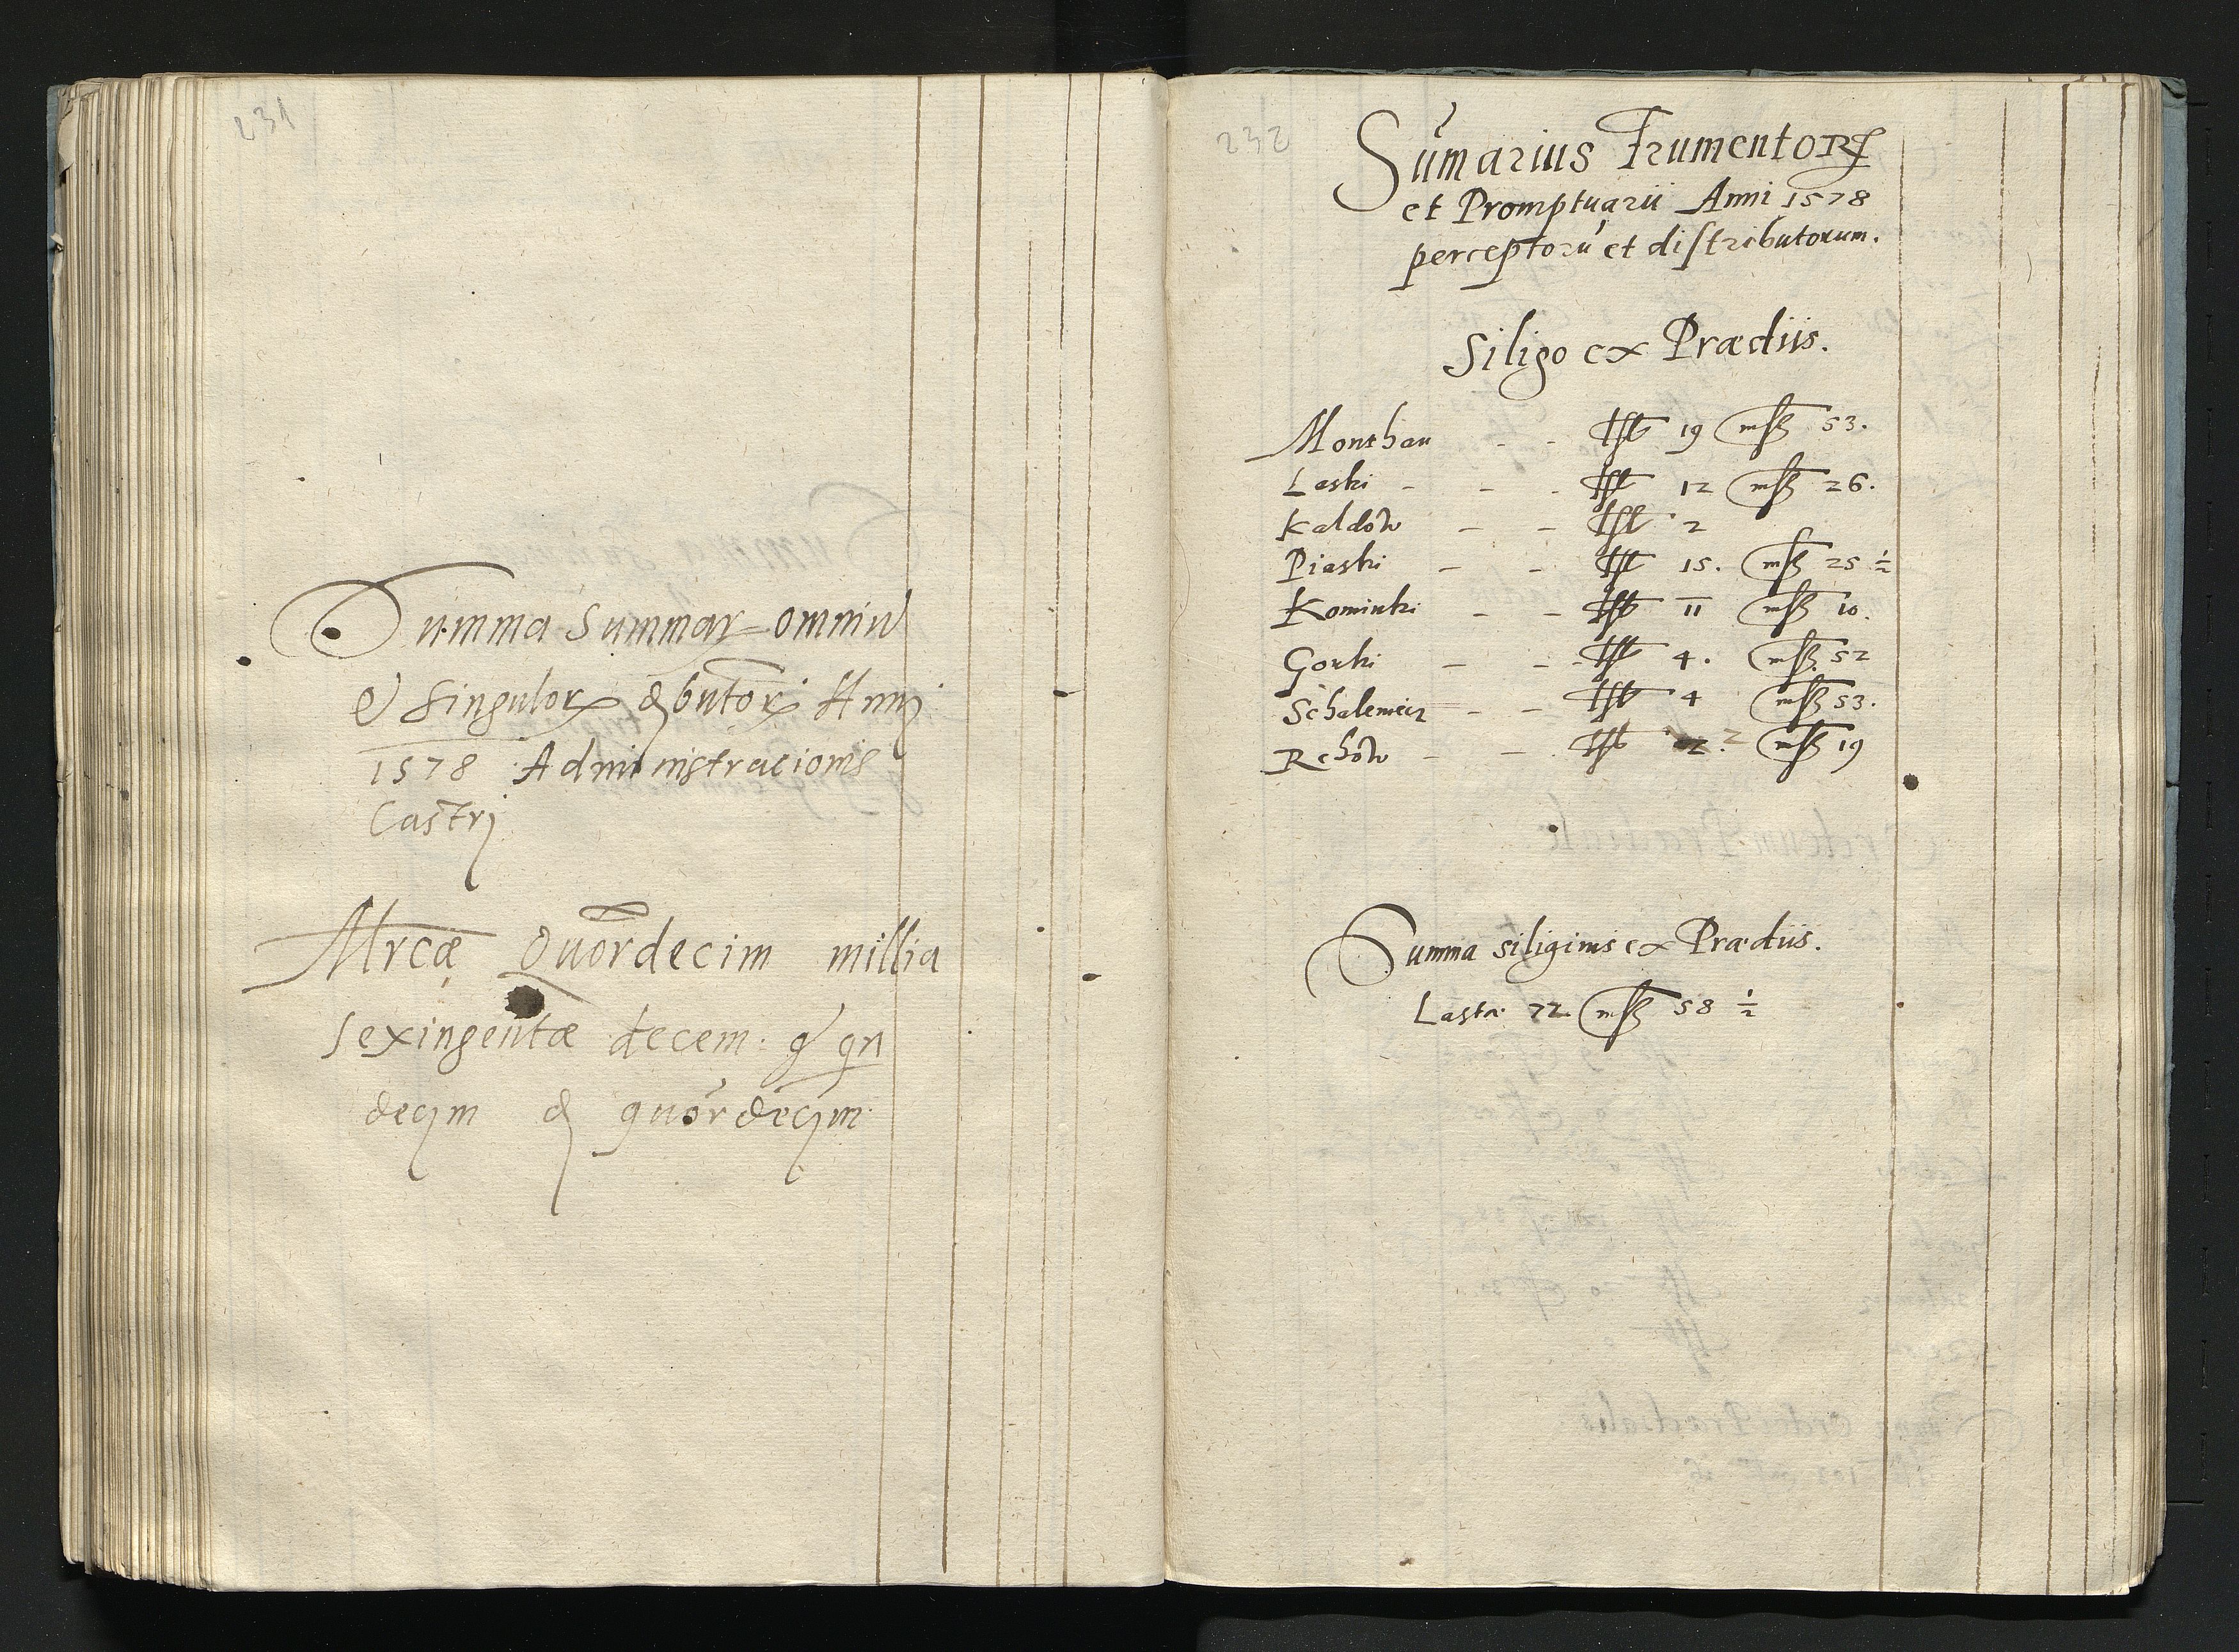 231
Summa Summar omniũ
et singulor distributor Anni
1578 Administracionis
Castri
Mrcæ Quõrdecim millia
sexingentæ decem. gͬ qn
decjm d quõrdecjm
232
Sum̃arius Frumentor
et Promptuarii Anni 1578
perceptorũ et distributorum.
Siligo ex Prædiis.
Monthau - - lst 19 msz 53.
Laski - - - lst 12 msz 26.
Kaldow - - lst 2
Piaski - - lst 15. msz 25 ½
Kominki - - lst 11 msz 10.
Gorki - - lst 4. msz 52
Schalemeiz - - lst 4 msz 53.
Rehow - - lst 2. msz 19
Summa siliginis ex Prædiis.
Lastæ 72 msz 58 ½